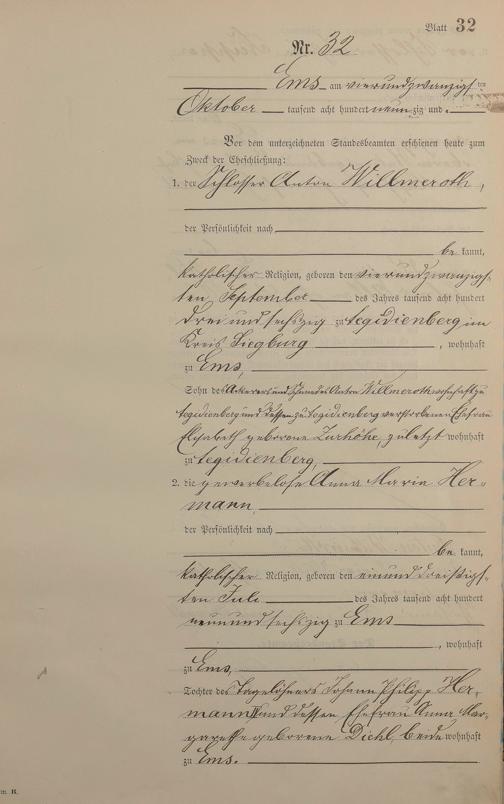 Blatt 32
Nr. 32
Ems am vierundzwanzigsten
Oktober tausend acht hundert neunzig und
Vor dem unterzeichneten Standesbeamten erschienen heute zum
Zweck der Eheschließung:
1. der Schlosser Anton Willmeroth,
der Persönlichkeit nach
bekannt,
katholischer Religion, geboren den vierundzwanzigs-
ten September des Jahres tausend acht hundert
drei und sechszig zu Aegidienberg im
Kreis Siegburg, wohnhaft
zu Ems,
Sohn des Ackerers und Anton Willmeroth wohnhaft zu
Aegidienberg und dessen zu Aegidienberg verstorbenen Ehefrau
Elisabeth geborene Zurhöhe, zuletzt wohnhaft
zu Aegidienberg,
2. die gewerbelose Anna Maria Her-
mann,
der Persönlichkeit nach
bekannt,
katholischer Religion, geboren den einund dreißigs-
ten Juli des Jahres tausend acht hundert
neunundsechszig zu Ems
, wohnhaft
zu Ems,
Tochter des Tagelöhners Johann Philipp Her-
mann und dessen Ehefrau Anna Mar-
garethe geborene Diehl, beide wohnhaft
zu Ems.